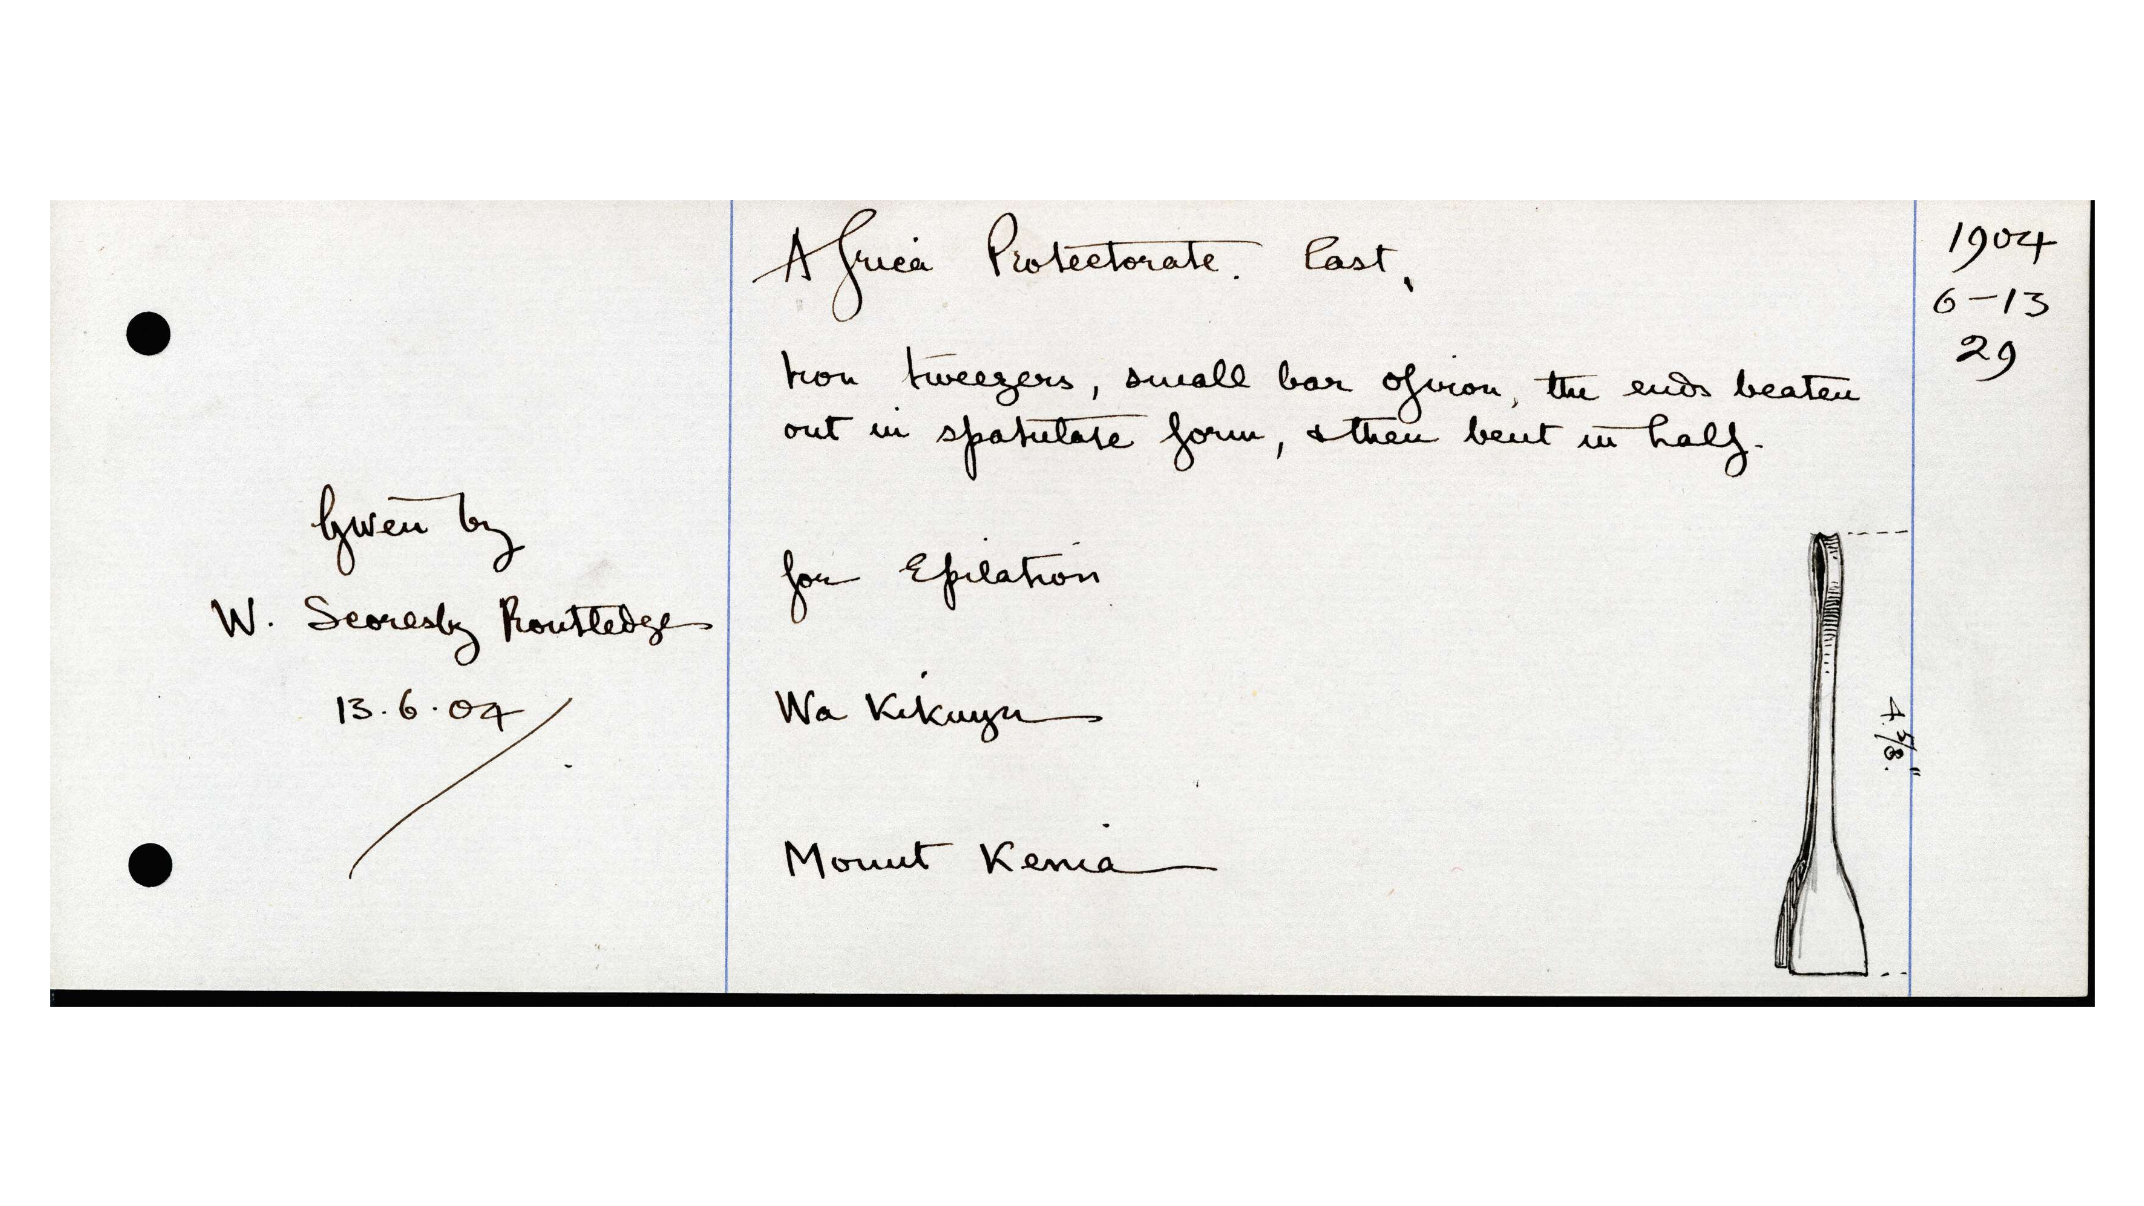 Given by
W. Scoresby Routledge
13.6.04
Africa Protectorate. East,
Iron tweezers, small bar of iron, the ends beaten
out in spatulate form, & then bent in half.
for Epilation
Wa Kikuyu
Mount Kenia
4.5/8."
1904
6-13
29